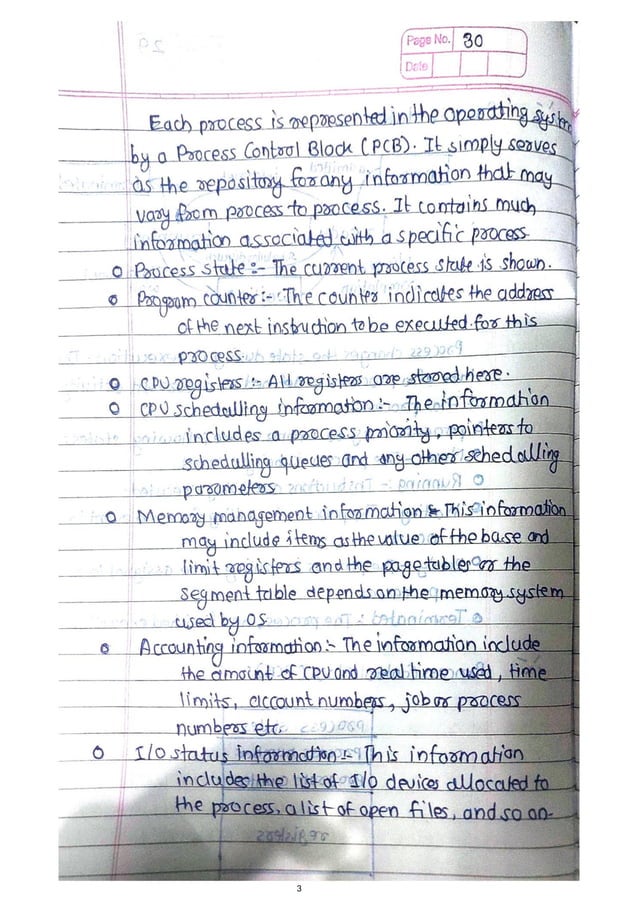 Page No. 30
Date
Each process is represented in the operating system
by a Process Control Block (PCB). It simply serves
as the repository for any information that may
vary from process to process. It contains much
information associated with a specific process
Process state :- The current process state is shown.
Program counter :- The counter indicates the address
of the next instruction to be executed for this
process.
CPU registers :- All registers are stored here.
CPU schedulling information :- The information
includes a process priority, pointers to
schedulling queues and any other schedulling
parameters
Memory management information :- This information
may include items as the value of the base and
limit registers and the page tables or the
segment table depends on the memory system
used by OS.
Accounting information :- The information include
the amount of CPU and real time used, time
limits, account numbers, job or process
numbers etc.
I/O status information :- This information
includes the list of I/O devices allocated to
the process, a list of open files, and so on-
3